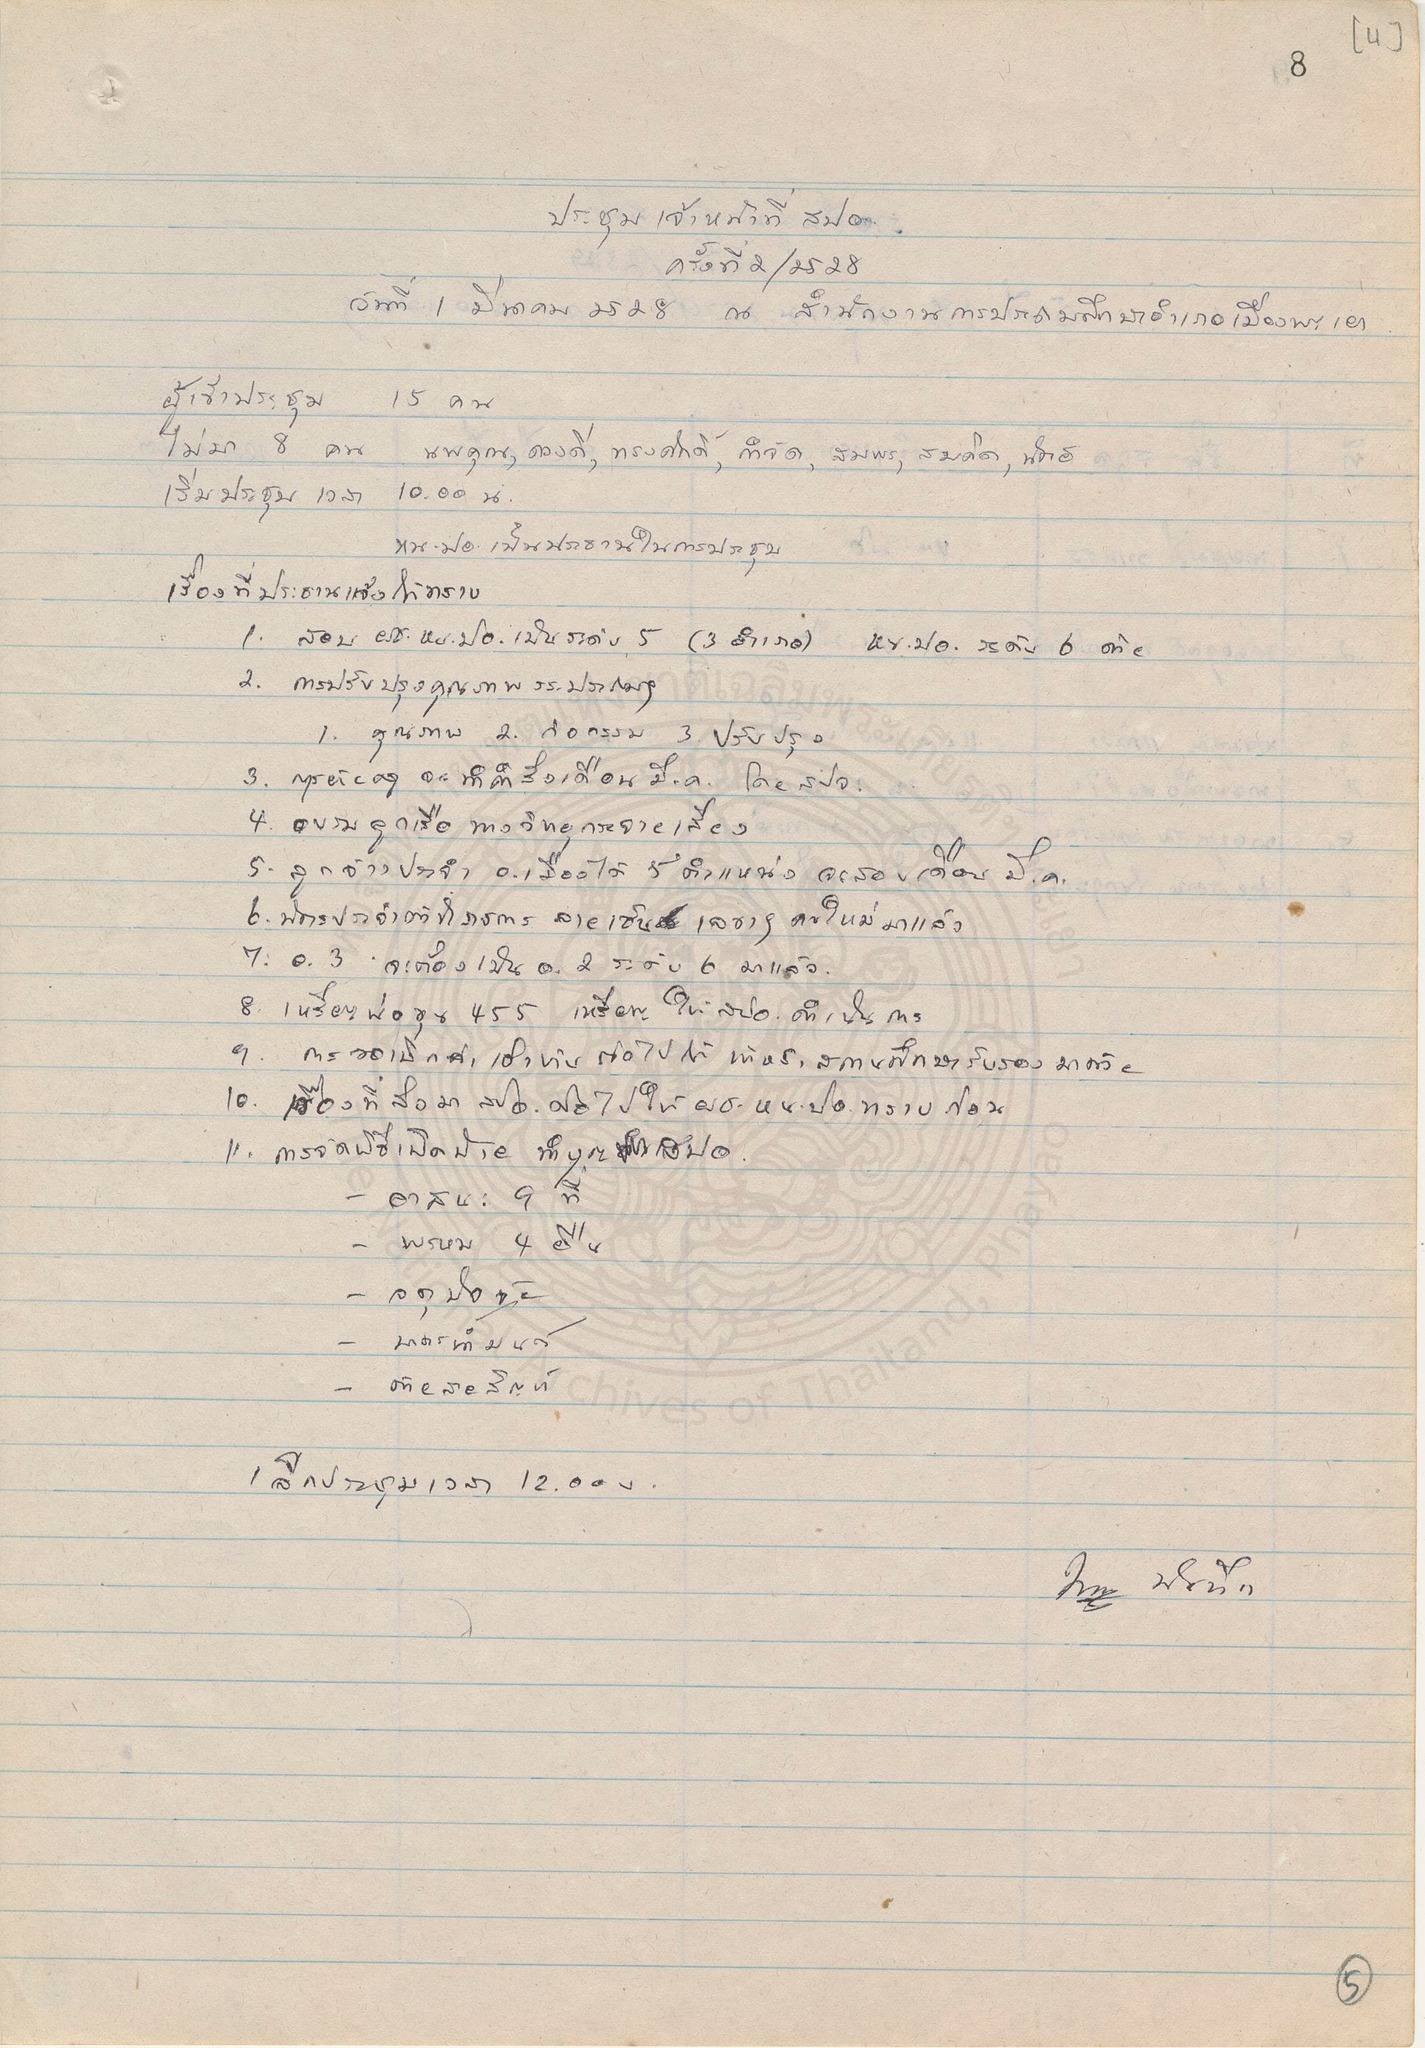 [4]
8
ประชุมเจ้าหน้าที่ สปอ.
ครั้งที่ 2/2528
วันที่ 1 มีนาคม 2528 ณ สำนักงานการประถมศึกษาอำเภอเมืองพะเยา
ผู้เข้าประชุม 15 คน
ไม่มา 8 คน นพคุณ, ดวงดี, ทรงศักดิ์, กำจัด, สมพร, สมคิด,
เริ่มประชุมเวลา 10.00 น.
หน.ปอ. เป็นประธานในการประชุม
เรื่องที่ประธานแจ้งให้ทราบ
1. สอบ ผช.หน.ปอ. เป็นระดับ 5 (3 อำเภอ) หน.ปอ. ระดับ 6 ด้วย
2. การปรับปรุงคุณภาพ รร.ประถมฯ
1. คุณภาพ 2. กิจกรรม 3 ปรับปรุง
3. จะทำคำสั่งเดือน มี.ค. โดย สปจ.
4. อบรมลูกเสือ ทางวิทยุกระจายเสียง
5. ลูกจ้างประจำ อ.เมืองได้ 5 ตำแหน่ง จะสอบเดือน มี.ค.
6. บัตรประจำตัวข้าราชการ ลายเซ็น เลขาฯ คนใหม่มาแล้ว
7. อ. 3 จะต้องเป็น อ. 2 ระดับ 6 มาแล้ว.
8. เหรียญพ่อขุน 455 เหรียญ ให้ สปอ. ดำเนินการ
9. การขอเบิกค่าเช่าบ้าน ต่อไปให้ สถานศึกษารับรองมาด้วย
10. เรื่องที่ส่งมา สปอ. ต่อไปให้ ผช.หน.ปอ. ทราบก่อน
11. การจัดพิธีเปิดป้าย ทำบุญ สปอ.
- อาสนะ 9 ที่
- พรหม 4 ผืน
- จตุปัจจัย
- บาตรน้ำมนต์
- ด้ายสายสิญจน์
เลิกประชุมเวลา 12.00 น.
บันทึก
5